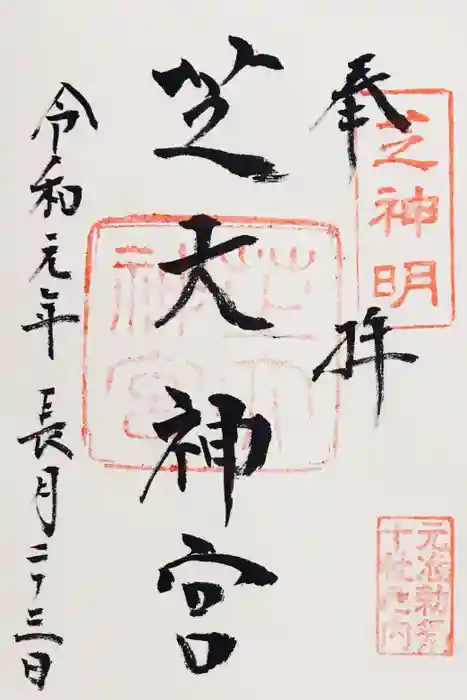 奉拝
芝神明
芝大神宮
芝大神宮
元准勅祭
十社之内
令和元年 長月二十三日